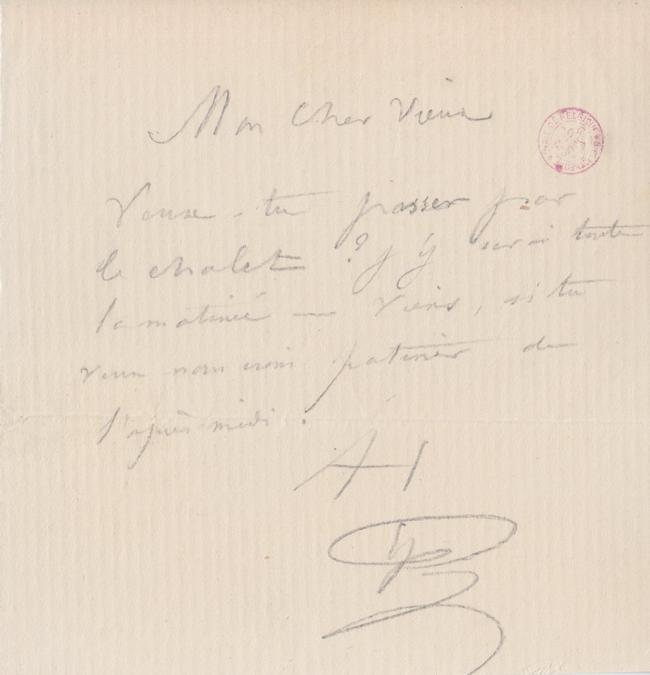 Mon cher Vieux
Veux-tu passer par
le chalet ? j'y serai toute
la matinée — Viens, si tu
veux nous irons patiner de
l'après-midi.